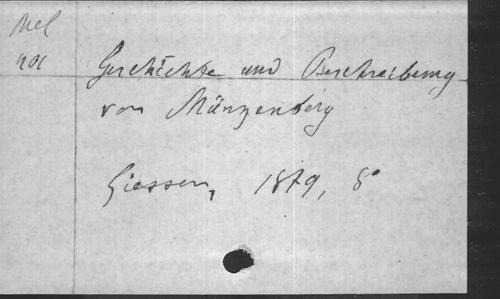 Mel
Geschichte und Beschreibung
von Münzenberg
Giessen, 1879, 8°